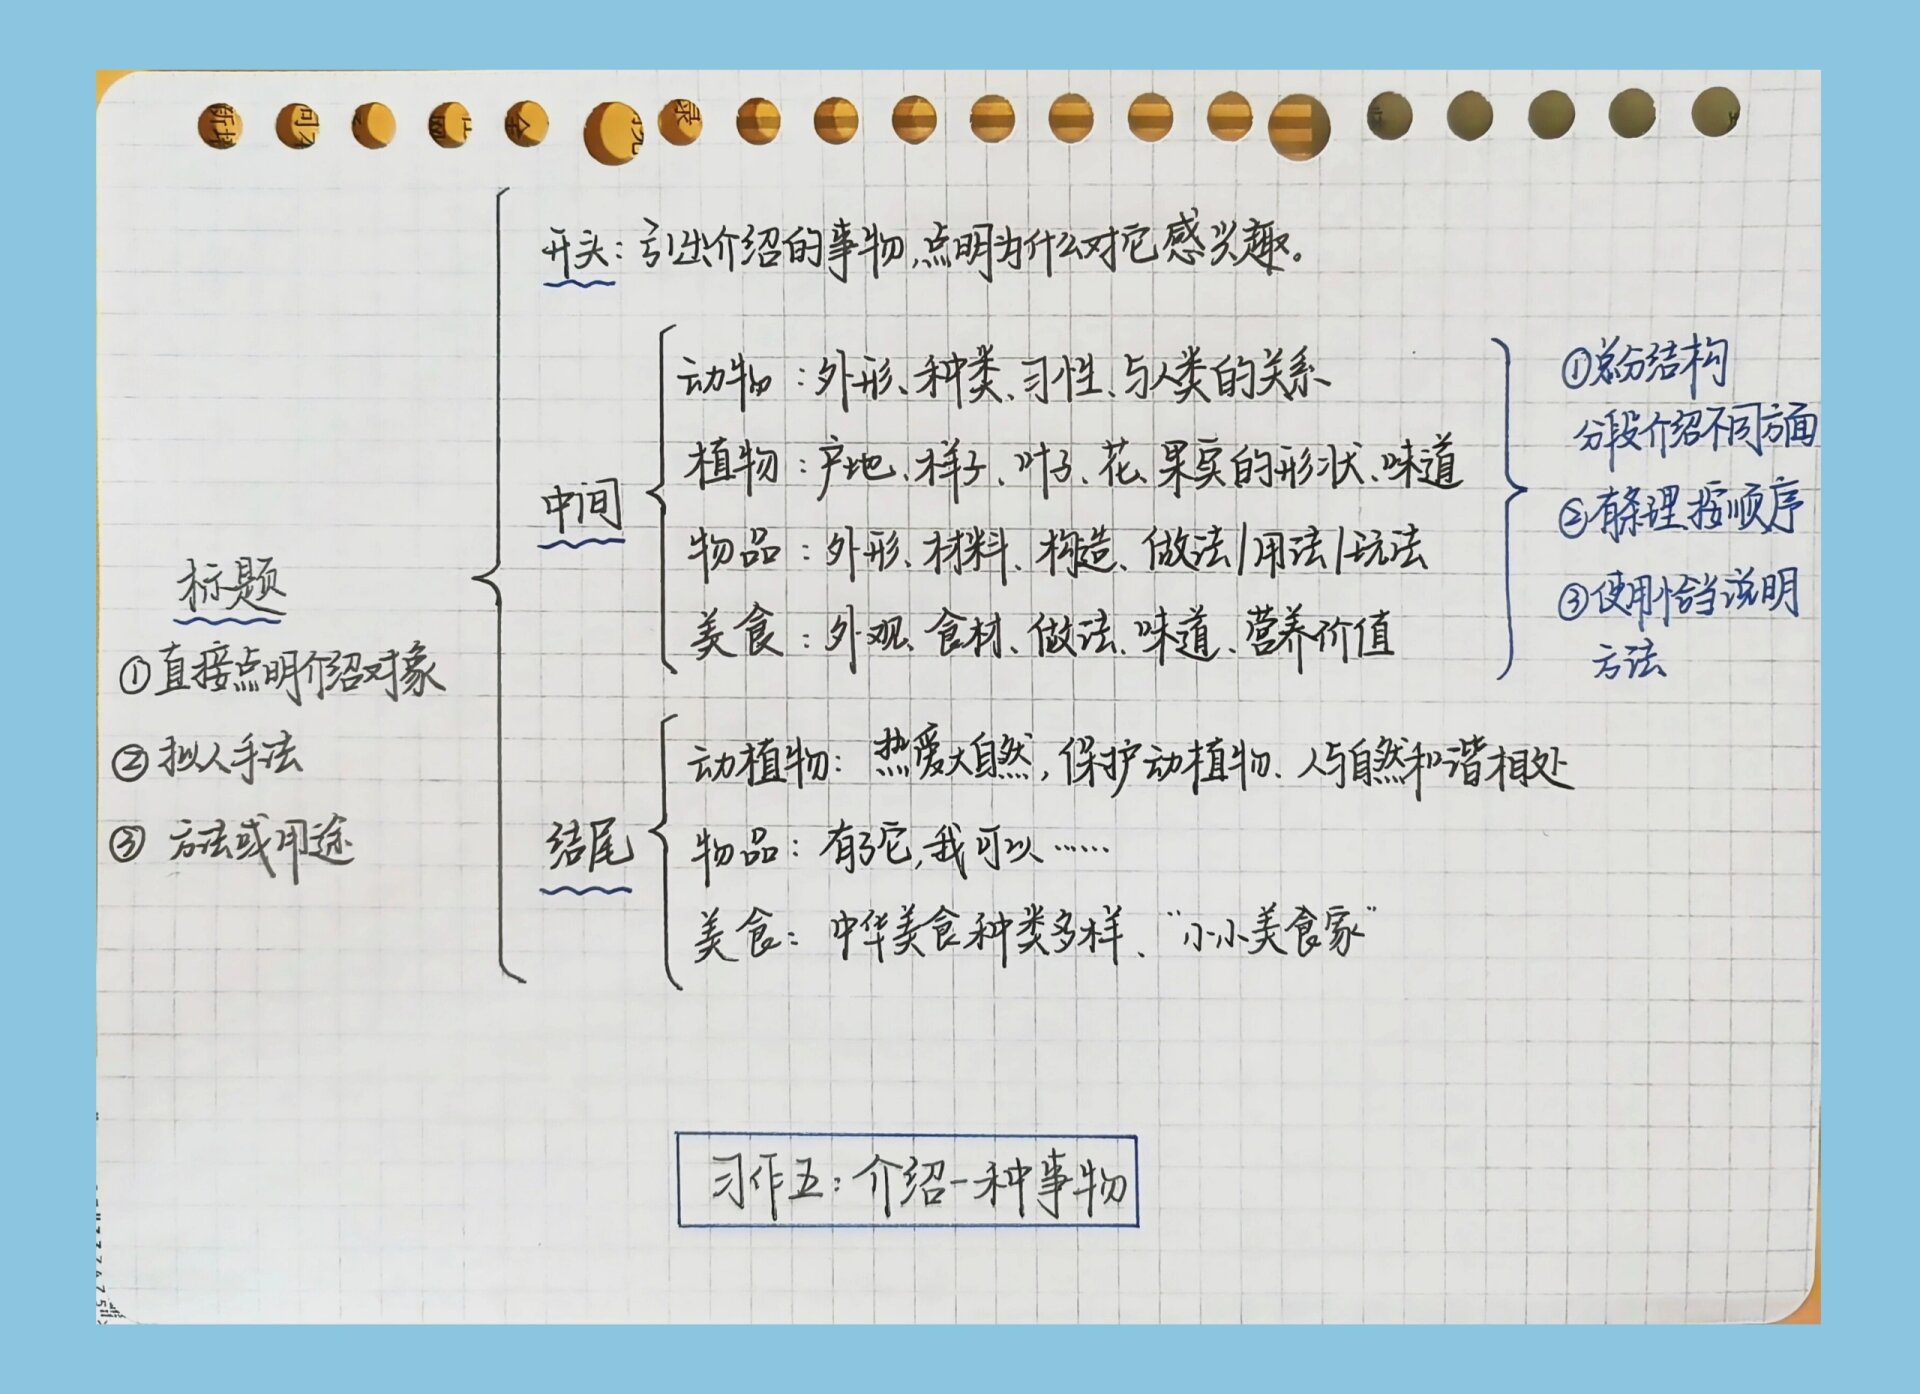 开头：引出介绍的事物，点明为什么对它感兴趣。
标题
①直接点明介绍对象
②拟人手法
③方法或用途
中间
动物：外形、种类、习性、与人类的关系
植物：产地、样子、叶子、花、果实的形状、味道
物品：外形、材料、构造、做法/用法/玩法
美食：外观、食材、做法、味道、营养价值
①总分结构
分段介绍不同方面
②有条理、按顺序
③使用恰当说明
方法
结尾
动植物：热爱大自然，保护动植物、人与自然和谐相处
物品：有了它，我可以……
美食：中华美食种类多样、“小小美食家”
习作五：介绍一种事物